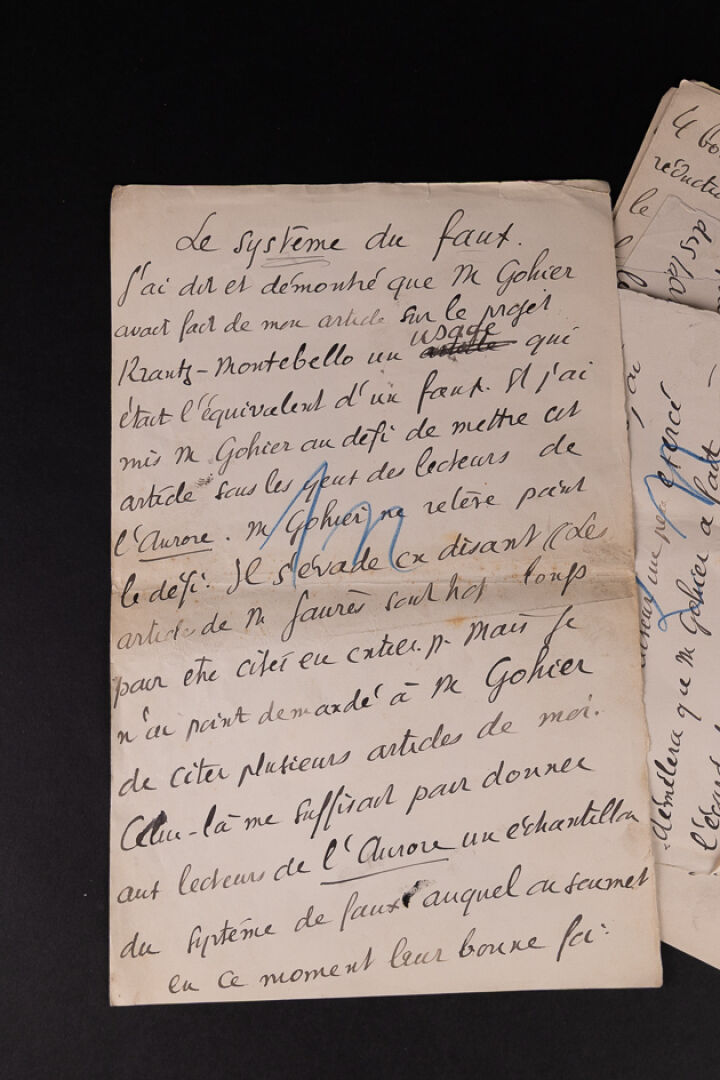 Le système du faux.
J'ai dit et démontré que M Gohier
avait fait de mon article sur le projet
Krantz-Montebello un usage qui
était l'équivalent d'un faux. Et j'ai
mis M Gohier au défi de mettre cet
article sous les yeux des lecteurs de
l'Aurore. M Gohier ne relève point
le défi. Il s'évade en disant « Les
articles de M Jaurès sont trop longs
pour être cités en entier. » Mais je
n'ai point demandé à M Gohier
de citer plusieurs articles de moi.
Celui-là me suffisait pour donner
aux lecteurs de l'Aurore un échantillon
du système de faux auquel on soumet
en ce moment leur bonne foi.
le
un peu exercé
démêlera que M Gohier a fait